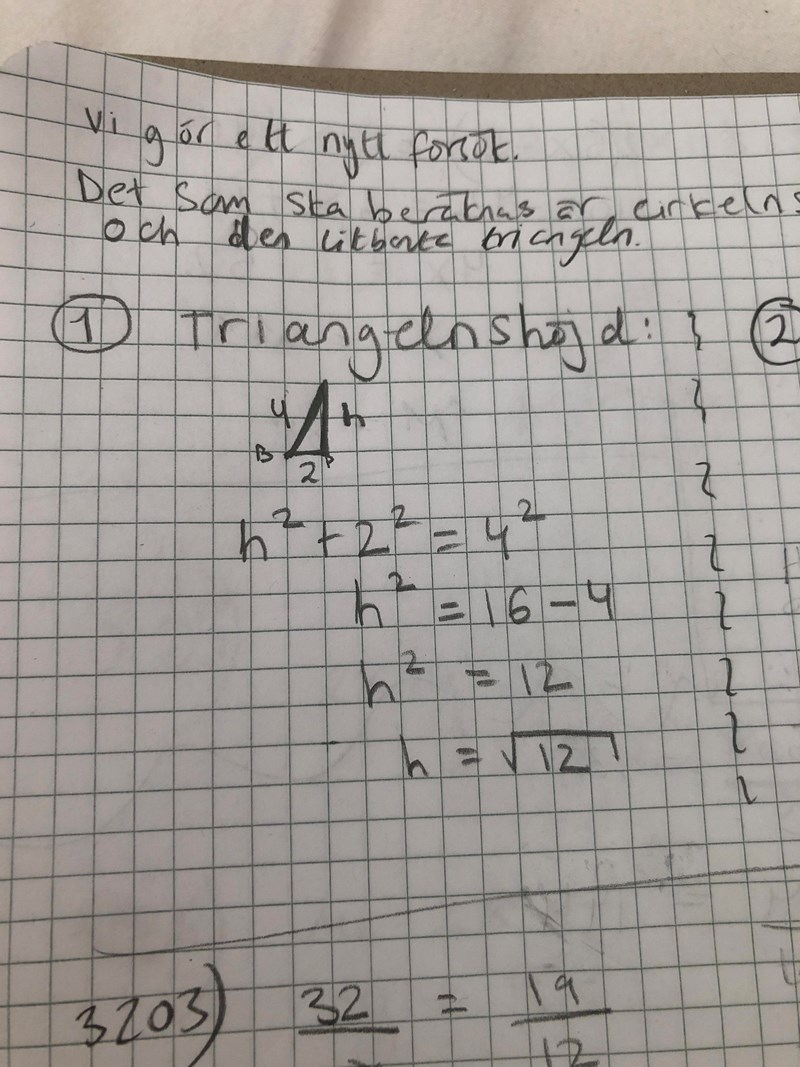 Vi gör ett nytt försök.
Det som ska beräknas är cirkelns
och den liksidiga triangeln.
① Triangelns höjd: } ②
4 h
B 2
h² + 2² = 4²
h² = 16 - 4
h² = 12
h = √12
3203) 32 = 19
12